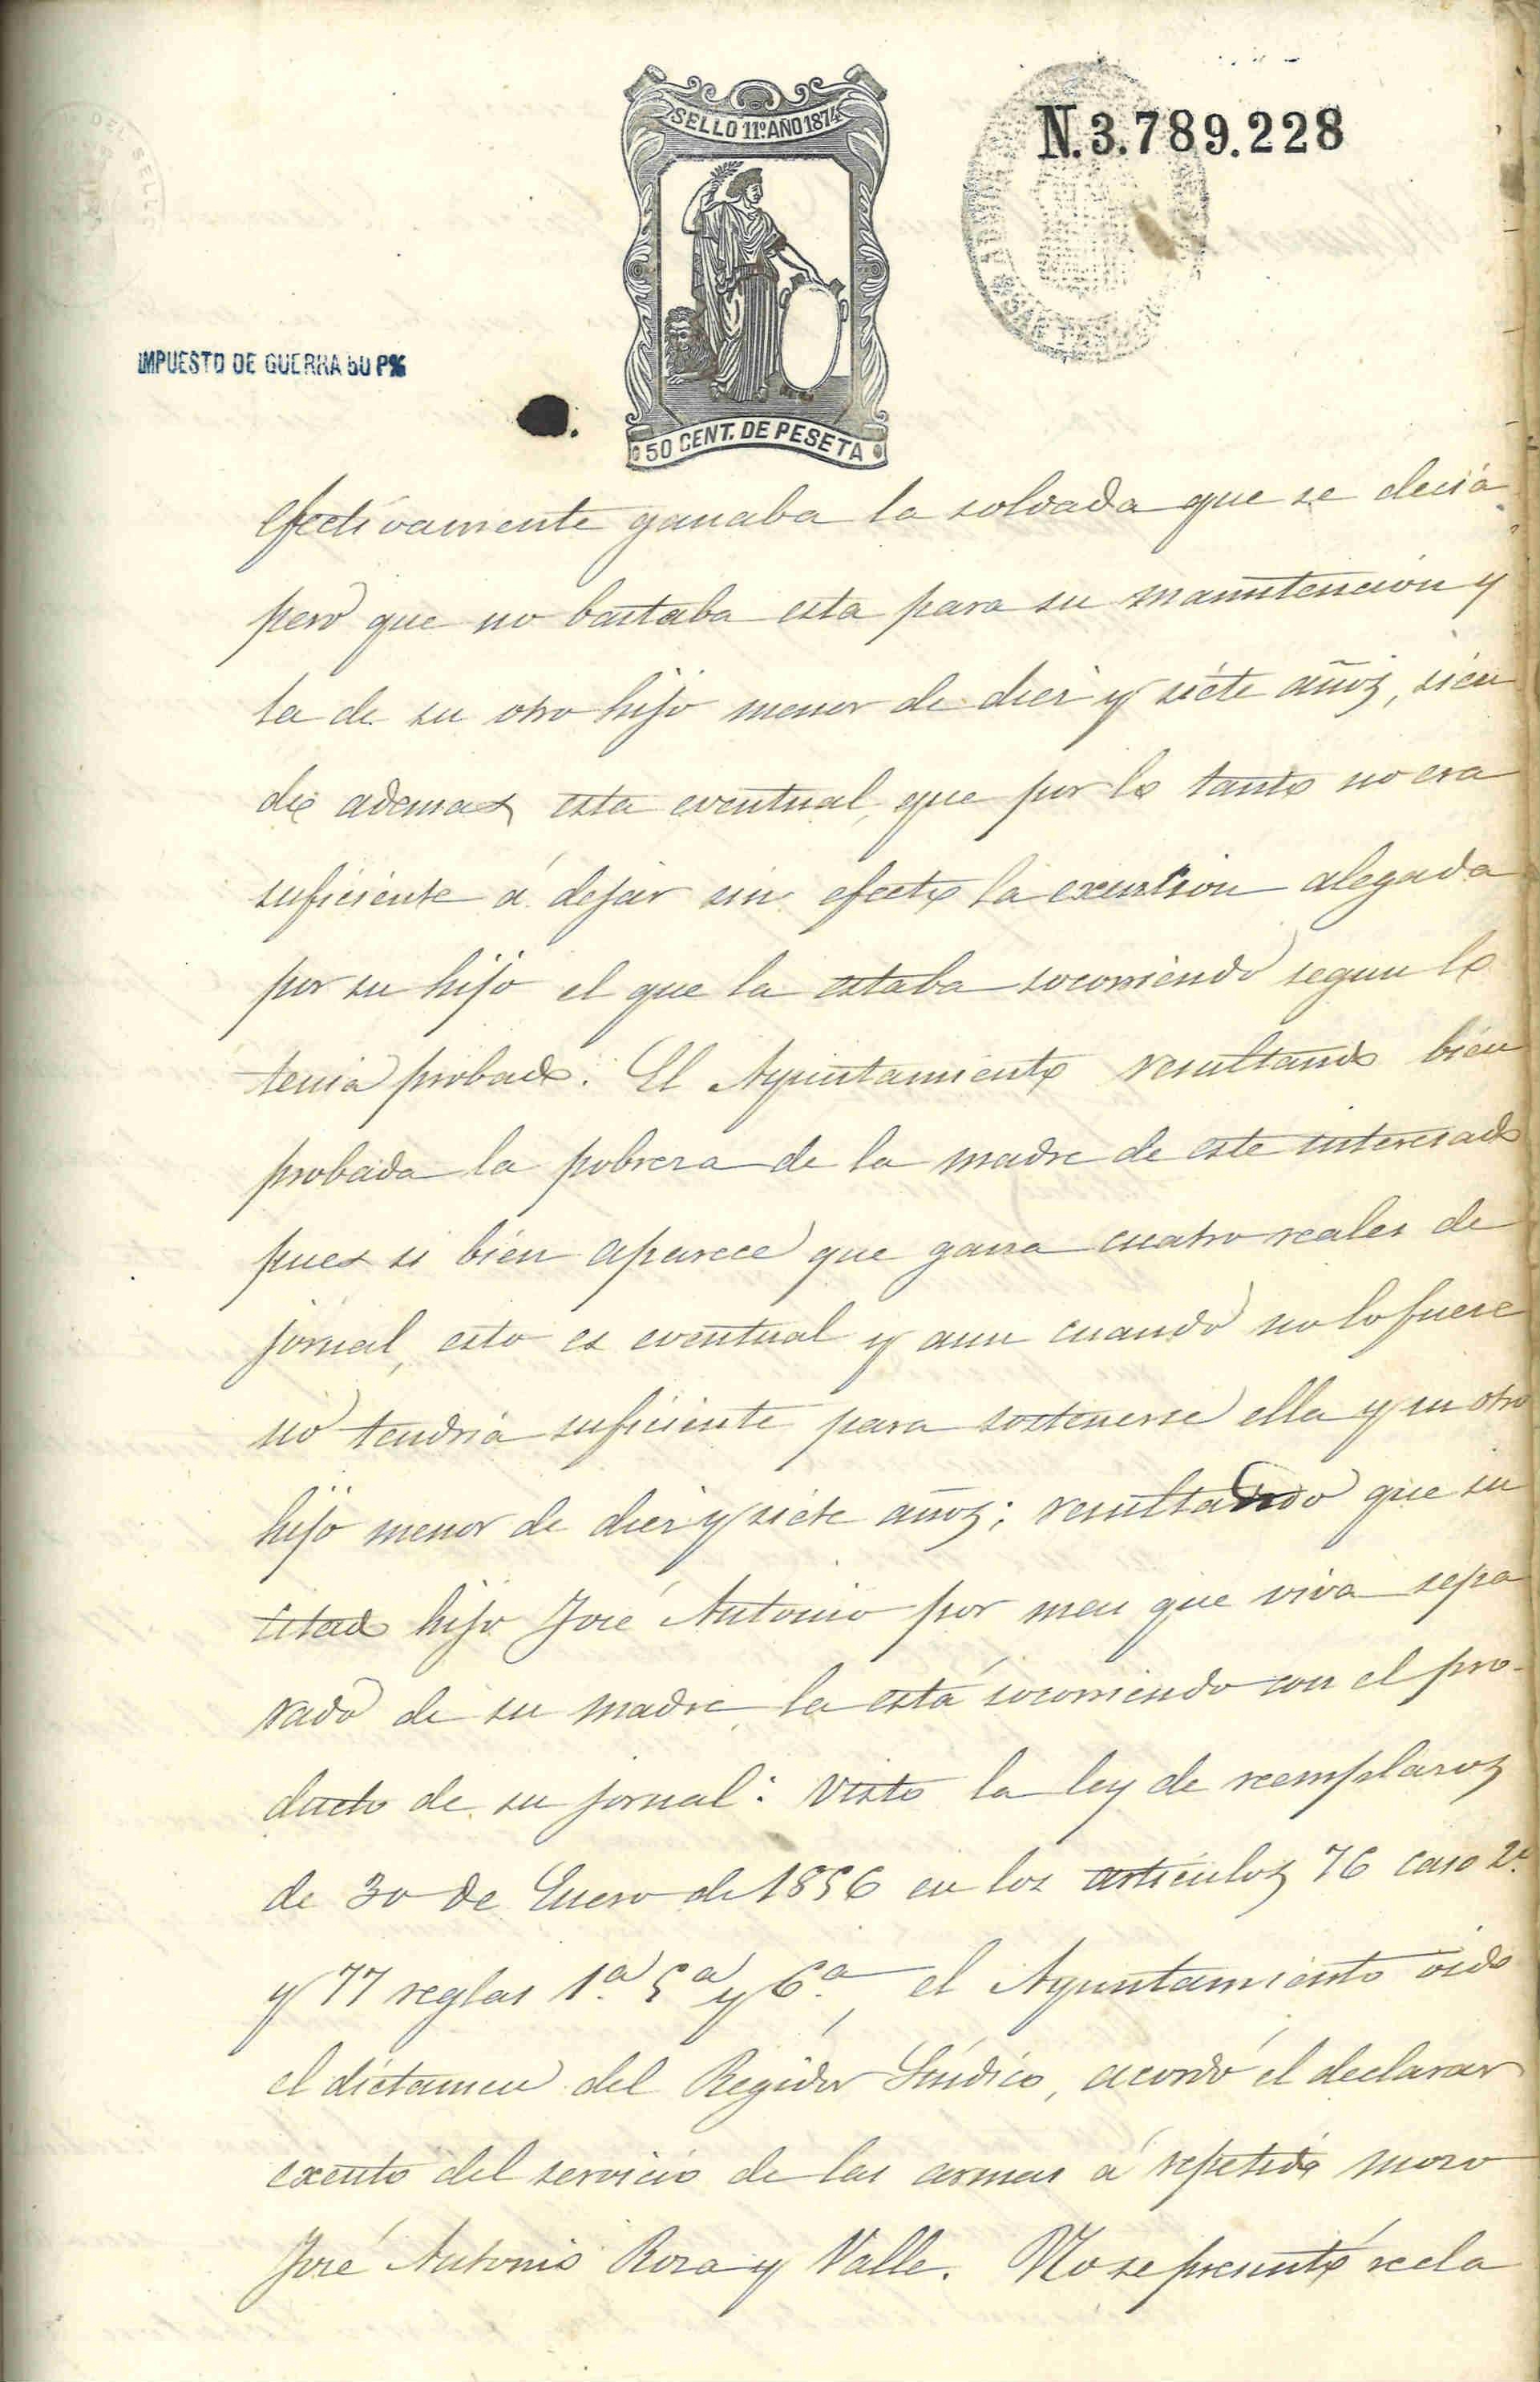 SELLO 11º AÑO 1874
N.3.789.228
IMPUESTO DE GUERRA 50 P%
50 CENT. DE PESETA
efectivamente ganaba la soldada que se decia
pero que no bastaba esta para su manutencion y
la de su otro hijo menor de diez y siete años, sien
do ademas esta eventual, que por lo tanto no era
suficiente á dejar sin efecto la exension alegada
por su hijo el que la estaba socorriendo segun lo
tenia probado. El Ayuntamiento resultando bien
probada la pobreza de la madre de este interesado
pues si bien aparece que gana cuatro reales de
jornal, esto es eventual y aun cuando no lo fuese
no tendria suficiente para sostenerse ella y su otro
hijo menor de diez y siete años; resultando que su
citado hijo José Antonio por mas que viva sepa
rado de su madre, la está socorriendo con el pro-
ducto de su jornal: Visto la ley de reemplazos
de 30 de Enero de 1856 en los articulos 76 caso 2º
y 77 reglas 1.ª 5ª y 6.ª, el Ayuntamiento oido
el dictamen del Regidor Sindico, acordó el declarar
exento del servicio de las armas á repetido mozo
José Antonio Roza y Valle. No se presentó recla